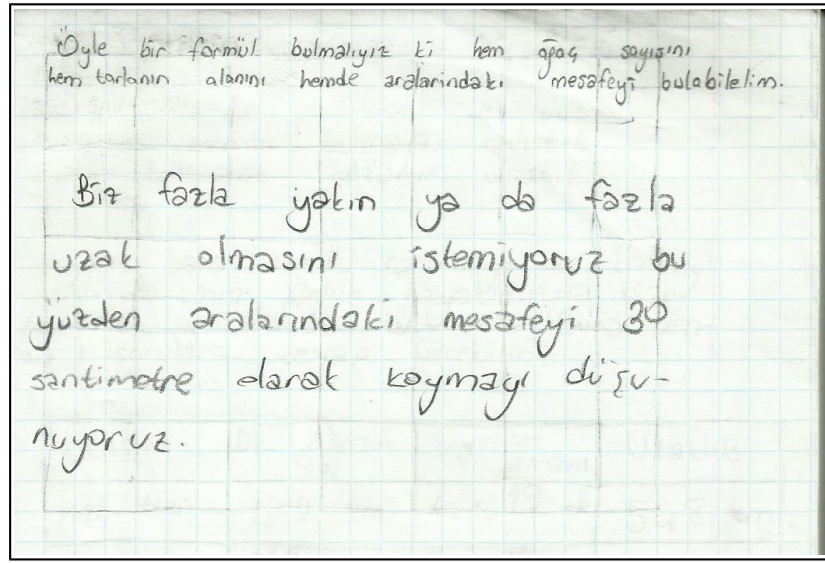 Öyle bir formül bulmalıyız ki hem ağaç sayısını
hem tarlanın alanını hemde aralarındaki mesafeyi bulabilelim.
Biz fazla yakın ya da fazla
uzak olmasını istemiyoruz bu
yüzden aralarındaki mesafeyi 30
santimetre olarak koymayı düşü-
nüyoruz.